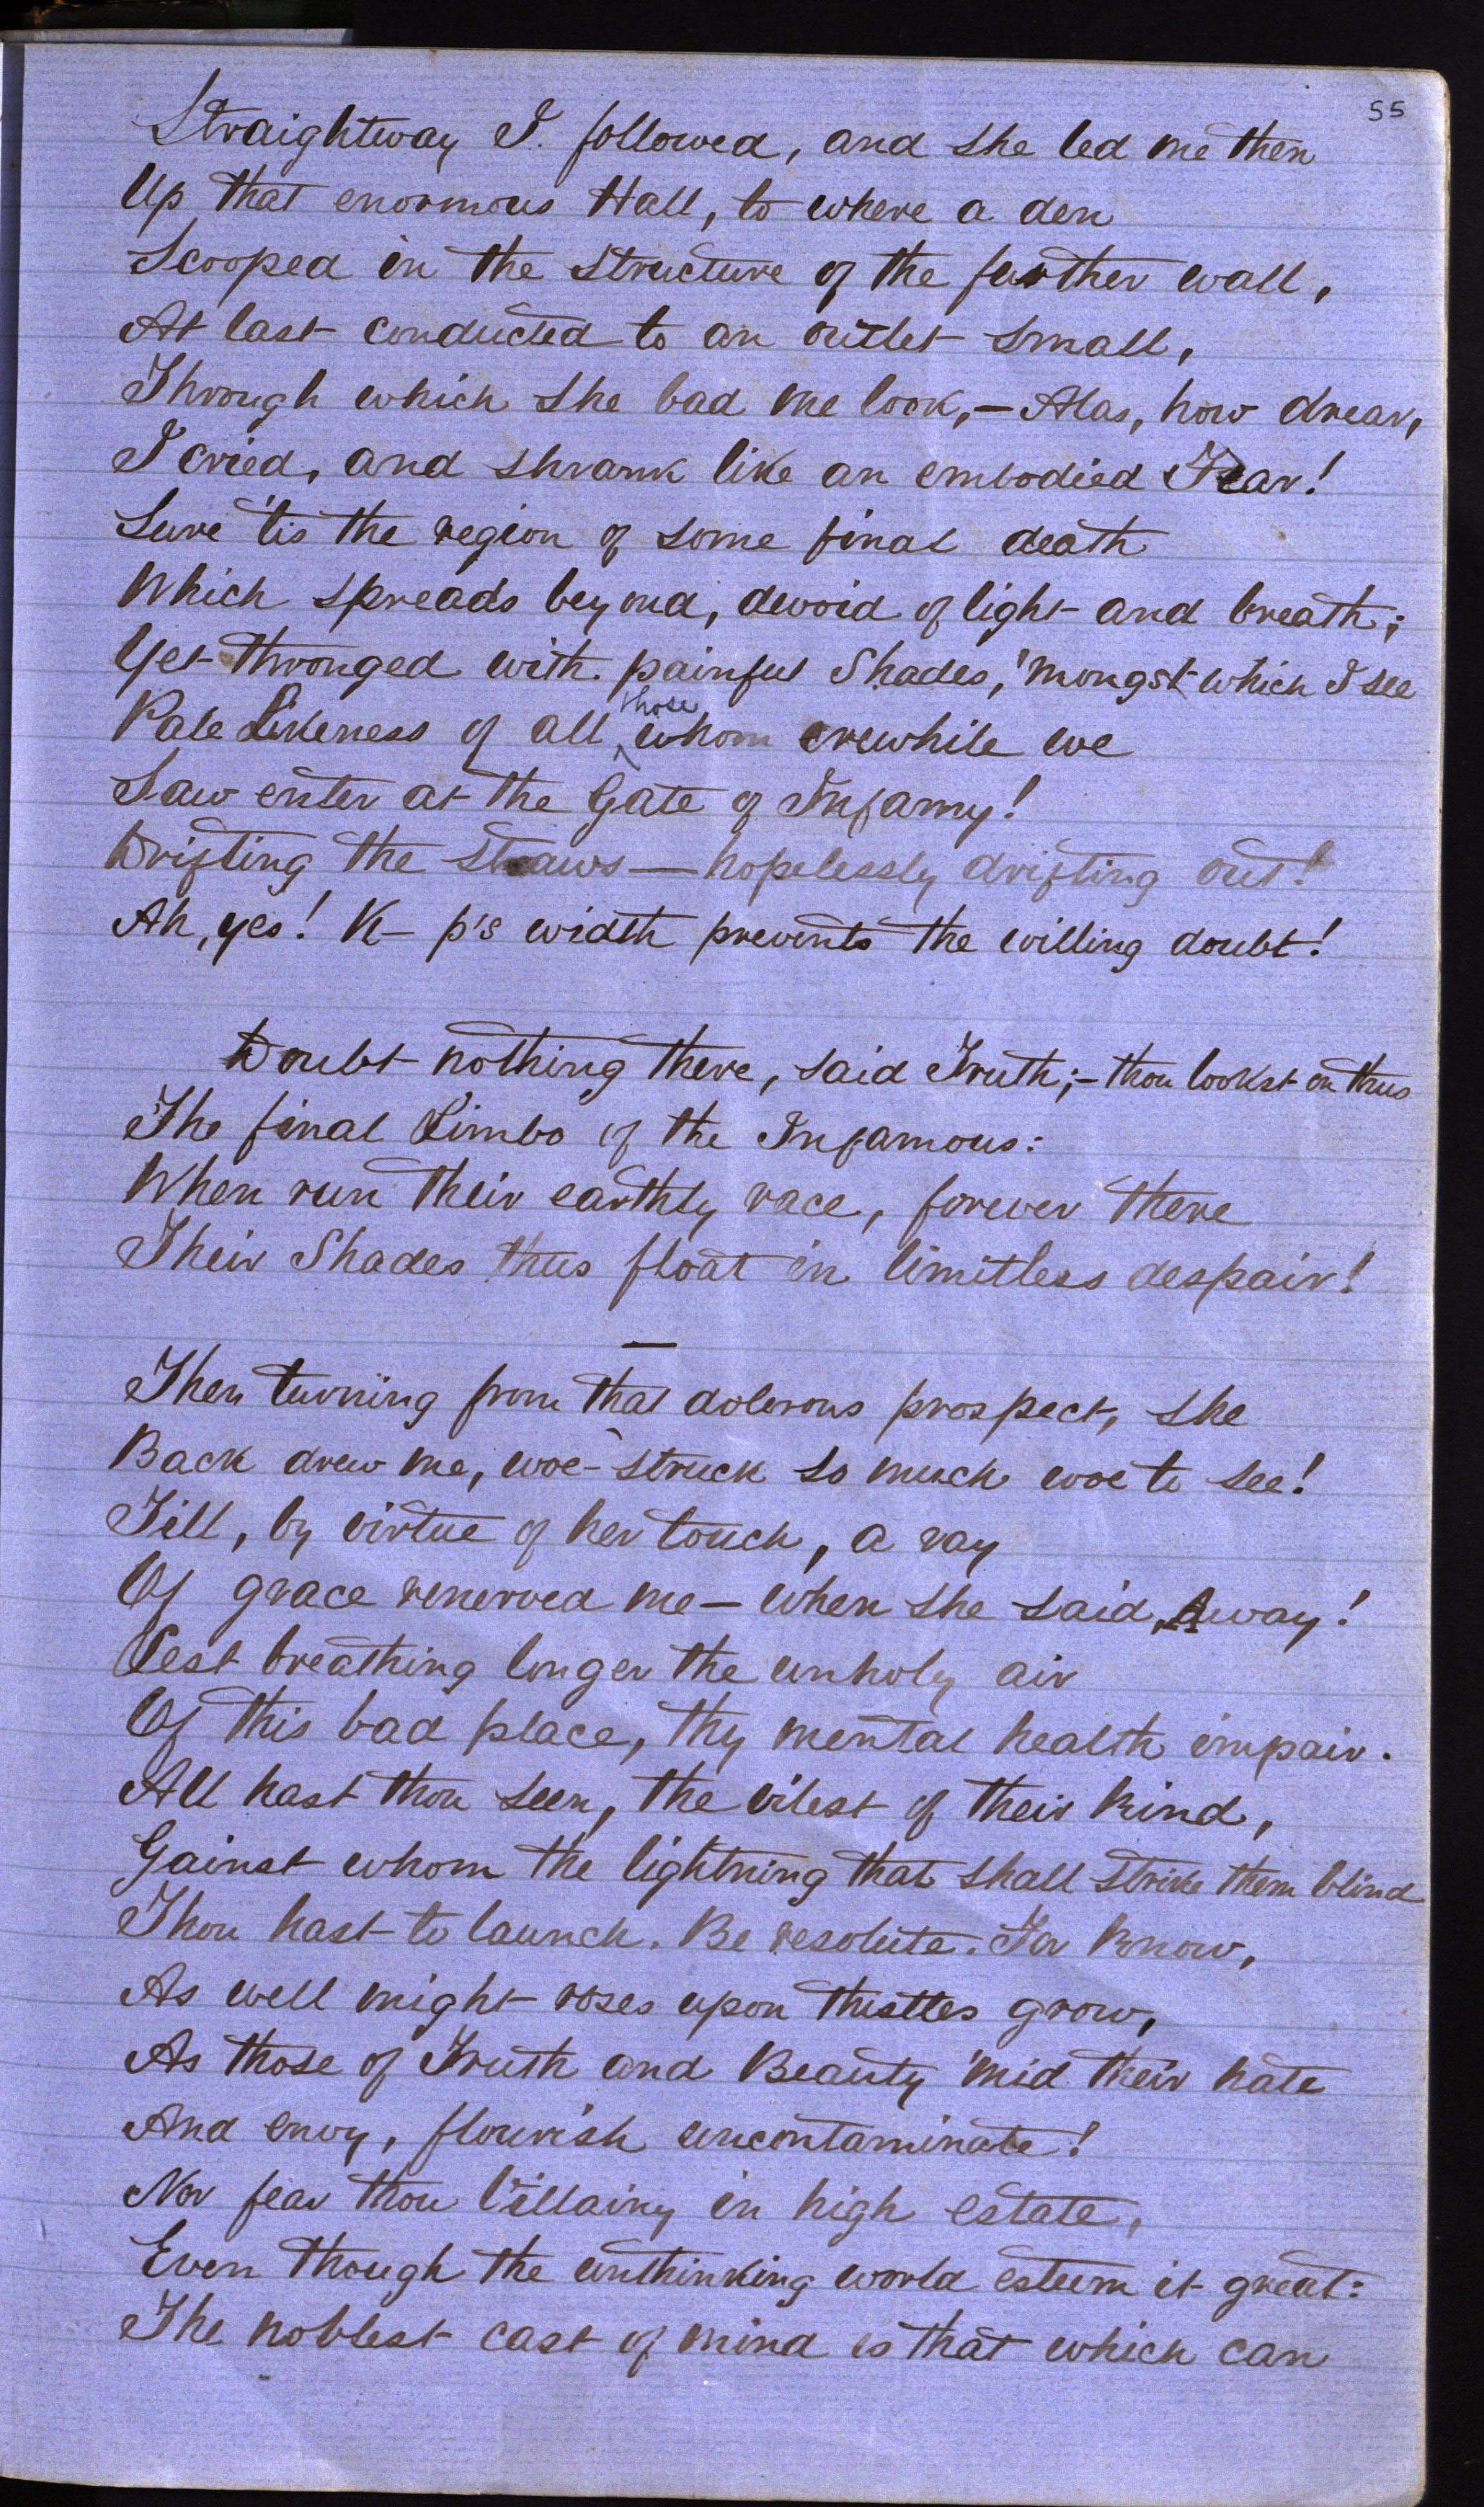 55
Straightway I. followed, and she led me then
Up that enormous Hall, to where a den
Scooped in the structure of the further wall,
At last conducted to an outlet small,
Through which she bad me look,— Alas, how drear,
I cried, and shrank like an embodied Fear!
Sure 'tis the region of some final death
Which spreads beyond, devoid of light and breath;
Yet thronged with painful Shades, 'mongst which I see
Pale Likeness of all those whom erewhile we
Saw enter at the Gate of Infamy!
Drifting the straws — hopelessly drifting out!
Ah, yes! K— p's width prevents the willing doubt!
Doubt nothing there, said Truth;— thou lookst on thus
The final Limbo of the Infamous:
When run their earthly race, forever there
Their Shades thus float in limitless despair!
—
Then turning from that dolerous prospect, she
Back drew me, woe-struck so much woe to see!
Till, by virtue of her touch, a ray
Of grace renerved me — when she said, Away!
Lest breathing longer the unholy air
Of this bad place, thy mental health impair.
All hast thou seen, the vilest of their kind,
Gainst whom the lightning that shall strike them blind
Thou hast to launch. Be resolute. For know,
As well might roses upon thistles grow,
As those of Truth and Beauty 'mid their hate
And envy, flourish uncontaminate!
Nor fear thou Villainy in high estate,
Even though the unthinking world esteem it great:
The noblest cast of mind is that which can